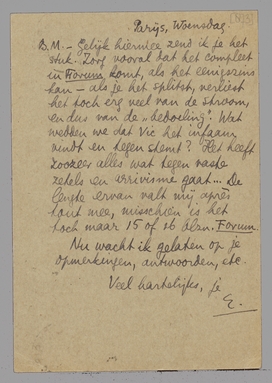 Parijs, Woensdag
B.M. – Gelijk hiermee zend ik je het
stuk. Zorg vooral dat het compleet
in Forum komt, als het eenigszins
kan – als je 't splitst, verliest
het toch erg veel van de stroom,
en dus van de "bedoeling". Wat
wedden we dat Vic het infaam
vindt en tegen stemt? Het heeft
zoozeer alles wat tegen vaste
zetels en arrivisme gaat... De
lengte ervan valt mij après
tout mee, misschien is het
toch maar 15 of 16 blzn. Forum.
Nu wacht ik gelaten op je
opmerkingen, antwoorden, etc.
Veel hartelijks, je
E.